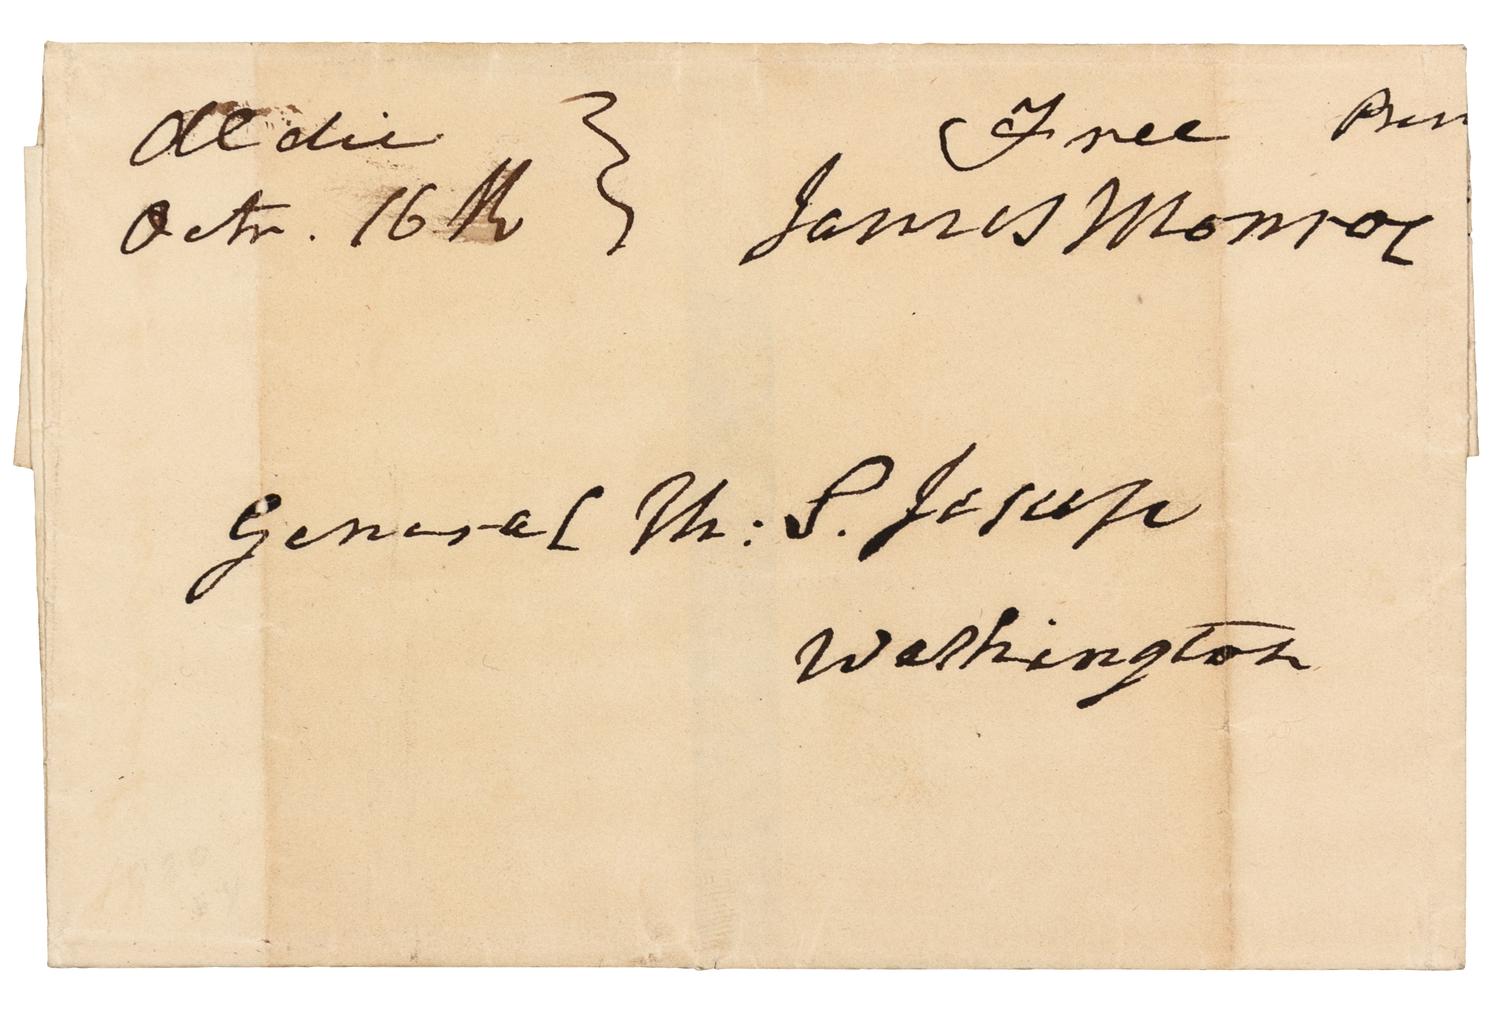 Aldie
Octr. 16th
Free
James Monroe
General Th: S. Jesup
Washington